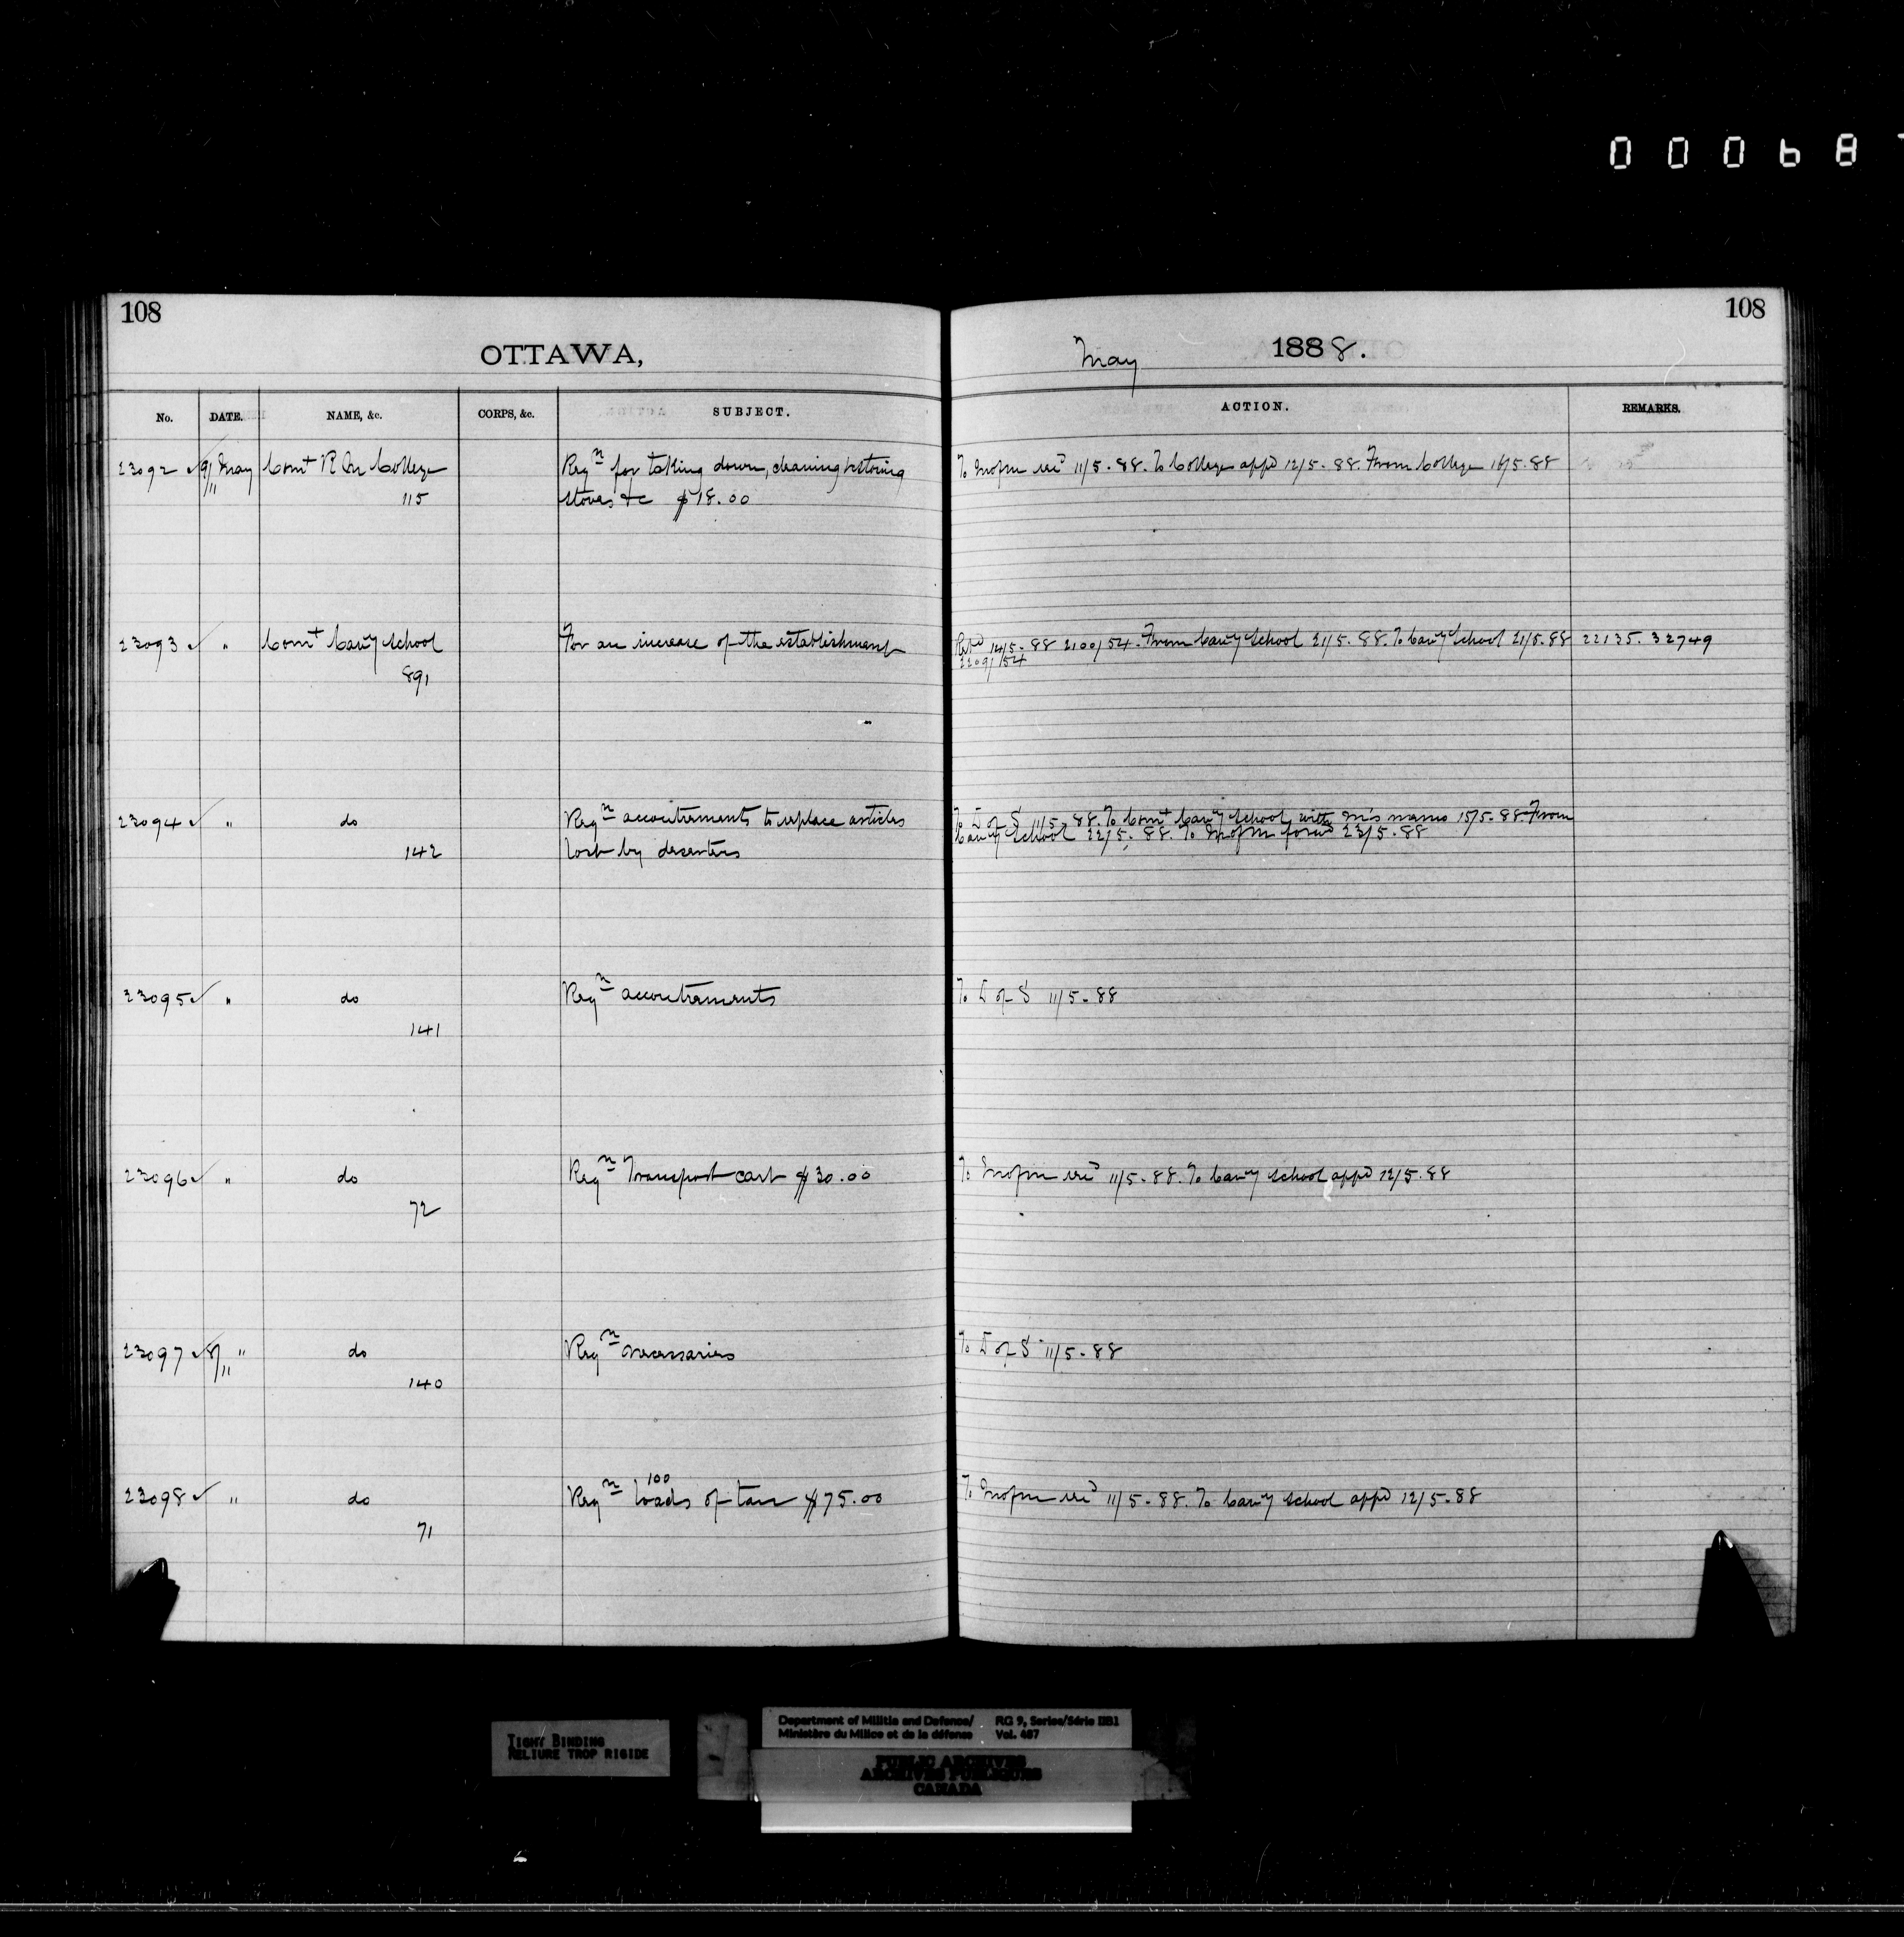 000687
108
108
OTTAWA,
May 1888.
No. DATE. NAME, &c. CORPS, &c. SUBJECT. ACTION. REMARKS.
23092 ✓ 9/11 May Comt R M College Reqn for taking down, cleaning & storing To M of M 11/5.88. To College appd 12/5.88. From College 18/5.88
115 stoves &c $18.00
23093 ✓ " Comt Cavy School For an increase of the establishment Retd 14/5.88 2100/54. From Cavy School 21/5.88. To Cavy School 21/5.88 22135. 32749
891 2209/54
23094 ✓ " do Reqn accoutrements to replace articles To D of S 11/5.88. To Comt Cavy School with M's memo 15/5.88. From
142 lost by deserters Cavy School 22/5.88. To M of M forwd 23/5.88
23095 ✓ " do Reqn accoutrements To D of S 11/5.88
141
23096 ✓ " do Reqn Transport cart $30.00 To M of M 11/5.88. To Cavy School appd 12/5.88
72
23097 ✓ 8/11 " do Reqn necessaries To D of S 11/5.88
140
23098 ✓ " do Reqn 100 loads of tan $75.00 To M of M 11/5.88. To Cavy School appd 12/5.88
71
TIGHT BINDING
RELIURE TROP RIGIDE
Department of Militia and Defence/ RG 9, Series/Série IIB1
Ministère du Milice et de la défense Vol. 487
PUBLIC ARCHIVES
ARCHIVES PUBLIQUES
CANADA